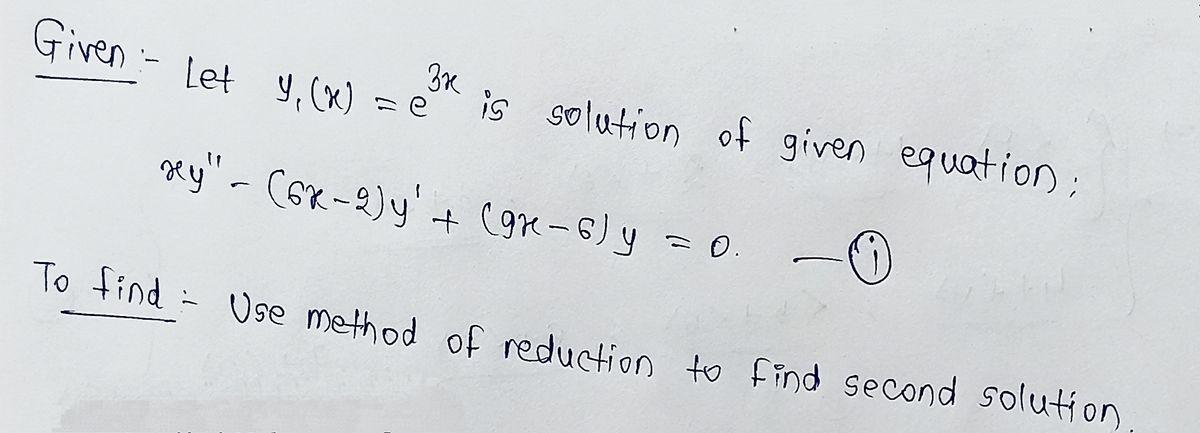 Given :- Let y₁(x) = e³ˣ is solution of given equation;
xy'' - (6x-2)y' + (9x-6)y = 0. —①
To find :- Use method of reduction to find second solution.